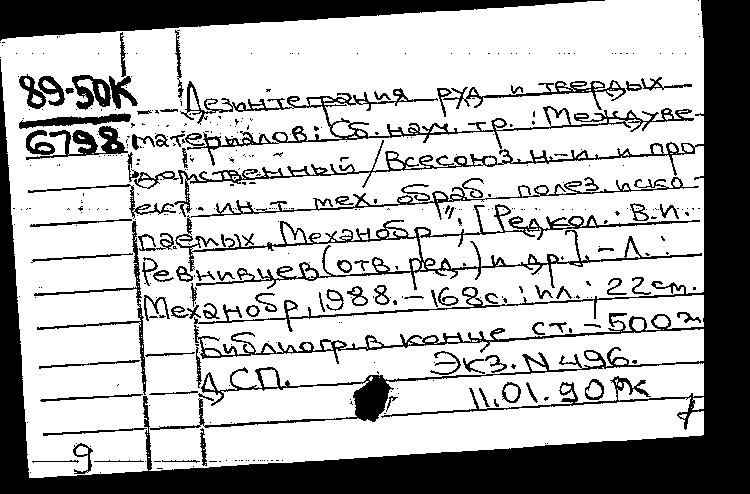 89-50К
6798
Дезинтеграция руд и твердых
материалов: Сб. науч. тр. : Междуве-
домственный / Всесоюз. н.-и. и про-
ект. ин-т мех. обраб. полез. иско-
паемых „Механобр"; [Редкол.: В.И.
Ревнивцев (отв. ред.) и др.]. - Л. :
Механобр, 1988. - 168с. : ил. ; 22см.
Библиогр. в конце ст. - 500 э.
ДСП. Экз. N 496.
11.01.90 РК
9